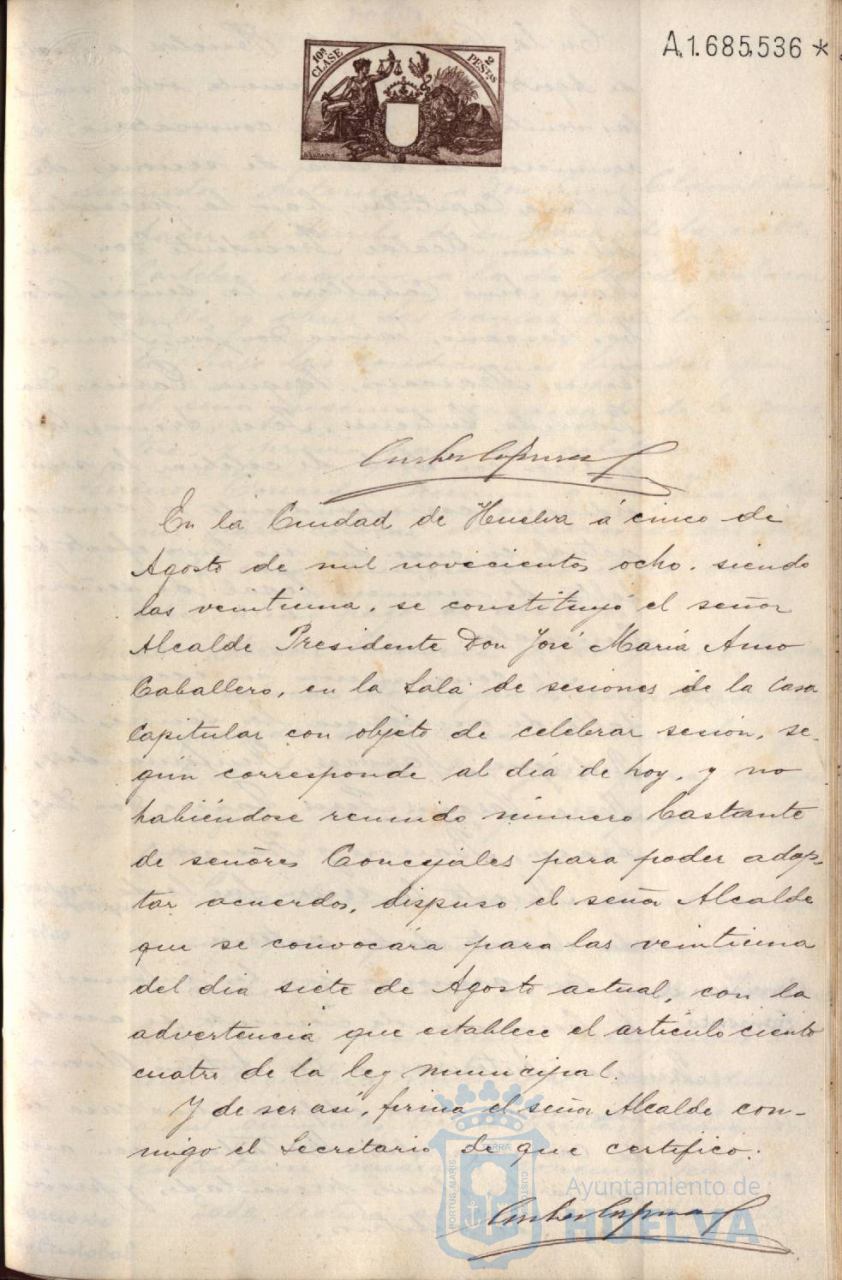 10ª CLASE
2 PESTAS
A.1.685,536 *
En la Ciudad de Huelva á cinco de
Agosto de mil novecientos ocho, siendo
las veintiuna, se constituyó el señor
Alcalde Presidente Don José María Amo
Caballero, en la Sala de sesiones de la Casa
Capitular con objeto de celebrar sesión, se-
gún corresponde al día de hoy, y no
habiéndose reunido número bastante
de señores Concejales para poder adop-
tar acuerdos, dispuso el señor Alcalde
que se convocára para las veintiuna
del dia siete de Agosto actual, con la
advertencia que establece el artículo ciento
cuatro de la ley municipal.
Y de ser así, firma el señor Alcalde con-
migo el Secretario de que certifico.
PORTUS MARIS
TERRAE
CUSTODIA
Ayuntamiento de
HUELVA